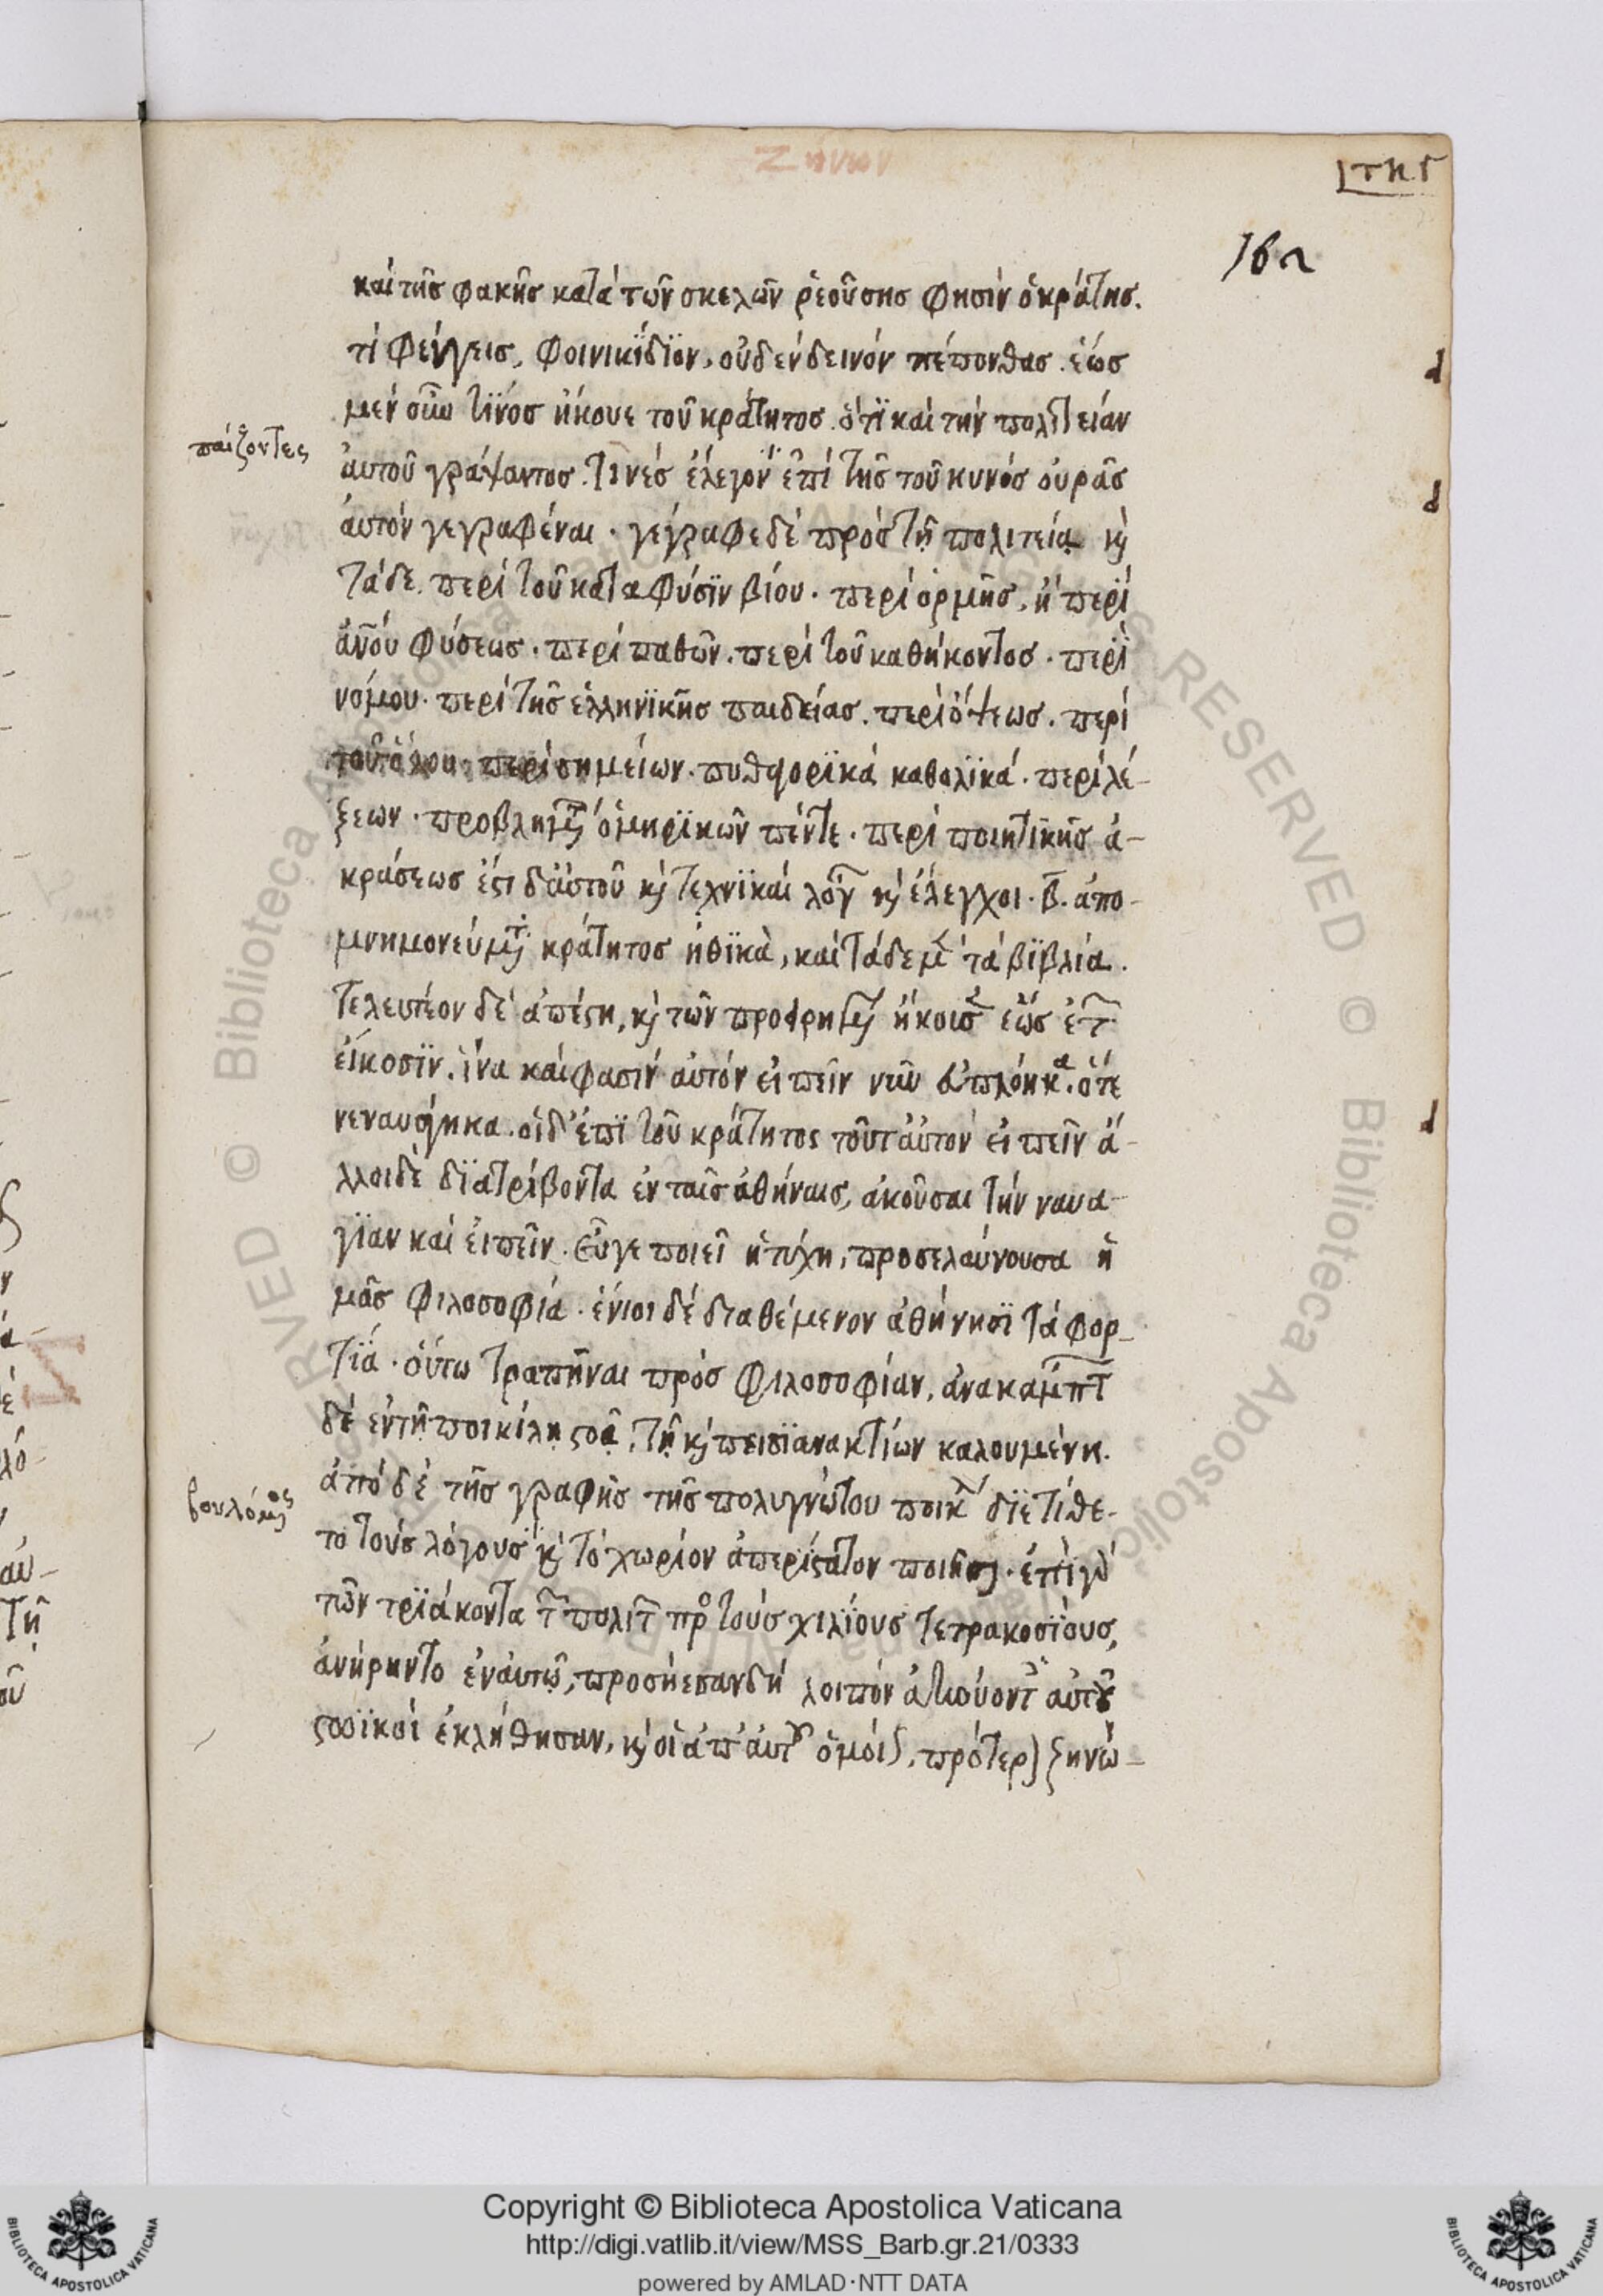 Ζήνων
τη.ς
162
καὶ τῆς φακῆς κατὰ τῶν σκελῶν ῥεούσης φησὶν ὁ κράτης.
τί φεύγεις, φοινικίδϊον, οὐδὲν δεινόν πέπονθας. ἕως
μέν οὖν τϊνός ἤκουε τοῦ κράτητος. ὅτϊ καὶ τὴν πολϊτείαν
παίζοντες
αὐτοῦ γράψαντος. τινές ἔλεγον ἐπὶ τῆς τοῦ κυνός οὐρᾶς
αὐτόν γεγραφέναι · γέγραφε δέ πρός τῇ πολιτείᾳ κ̀
τάδε. περὶ τοῦ κατα φύσϊν βίου · περὶ ὁρμῆς, ἢ περὶ
ἀν̅ου φύσεως · περὶ παθῶν. περὶ τοῦ καθήκοντος · περὶ
νόμου · περὶ τῆς ἑλληνϊκῆς παιδείας. περὶ ὄψεως. περὶ
τοῦ ὅλου · περὶ σημείων · πυθαγορϊκά καθολϊκά · περὶ λέ-
ξεων · προβλημτ ὁμηρϊκῶν πέντε · περὶ ποιητϊκῆς ἀ-
κράσεως ἔστι δ' αὐτοῦ κ̀ τεχνϊκαὶ λογ κ̀ ἔλεγχοι · β̅. ἀπο-
μνημονεύμτ κράτητος ἠθϊκὰ, καὶ τάδε μ τά βϊβλία.
τελευτέον δέ ἀπέστη, κ̀ τῶν προ ἤκουσ ἕως ἐτ
εἴκοσϊν. ἵνα καί φασίν αὐτόν εἰπεῖν νῦν εὐπλόηκα. ὅτε
νεναυάγηκα. οἱ δ' ἐπϊ τοῦ κράτητος τοῦτ' αὐτόν εἰπεῖν ἄ-
λλοι δὲ δϊατρίβοντα ἐν ταῖς ἀθήναις, ἀκοῦσαι τήν ναυα-
γϊαν καὶ εἰπεῖν. εὖγε ποιεῖ ἡ τύχη, προσελαύνουσα ἡ
μᾶς φιλοσοφίᾳ · ἔνιοι δέ διαθέμενον ἀθήνησϊ τά φορ-
τϊά · οὕτω τραπῆναι πρός φιλοσοφίαν, ἀνακαμπτ
δέ ἐν τῇ ποικίλῃ στοᾷ, τῇ κ̀ πεισϊανακτίων καλουμένη.
ἀπό δέ τῆς γραφῆς τῆς πολυγνώτου ποικ δϊετίθε-
βουλόμος
το τούς λόγους κ̀ τό χωρίον ἀπερίστατον ποιῆσ · ἐπὶ γ
τῶν τρϊάκοντα τ πολιτ πρ τούς χιλϊους τετρακοσϊους,
ἀνήρηντο ἐν αὐτῷ, προσήεσαν δή λοιπόν ἀκούοντ αὐτου
στοϊκοί ἐκλήθησαν, κ̀ οἱ ἀπ' αὐτ ὁμοί, πρότερ ζηνώ-
Copyright © Biblioteca Apostolica Vaticana
http://digi.vatlib.it/view/MSS_Barb.gr.21/0333
powered by AMLAD·NTT DATA